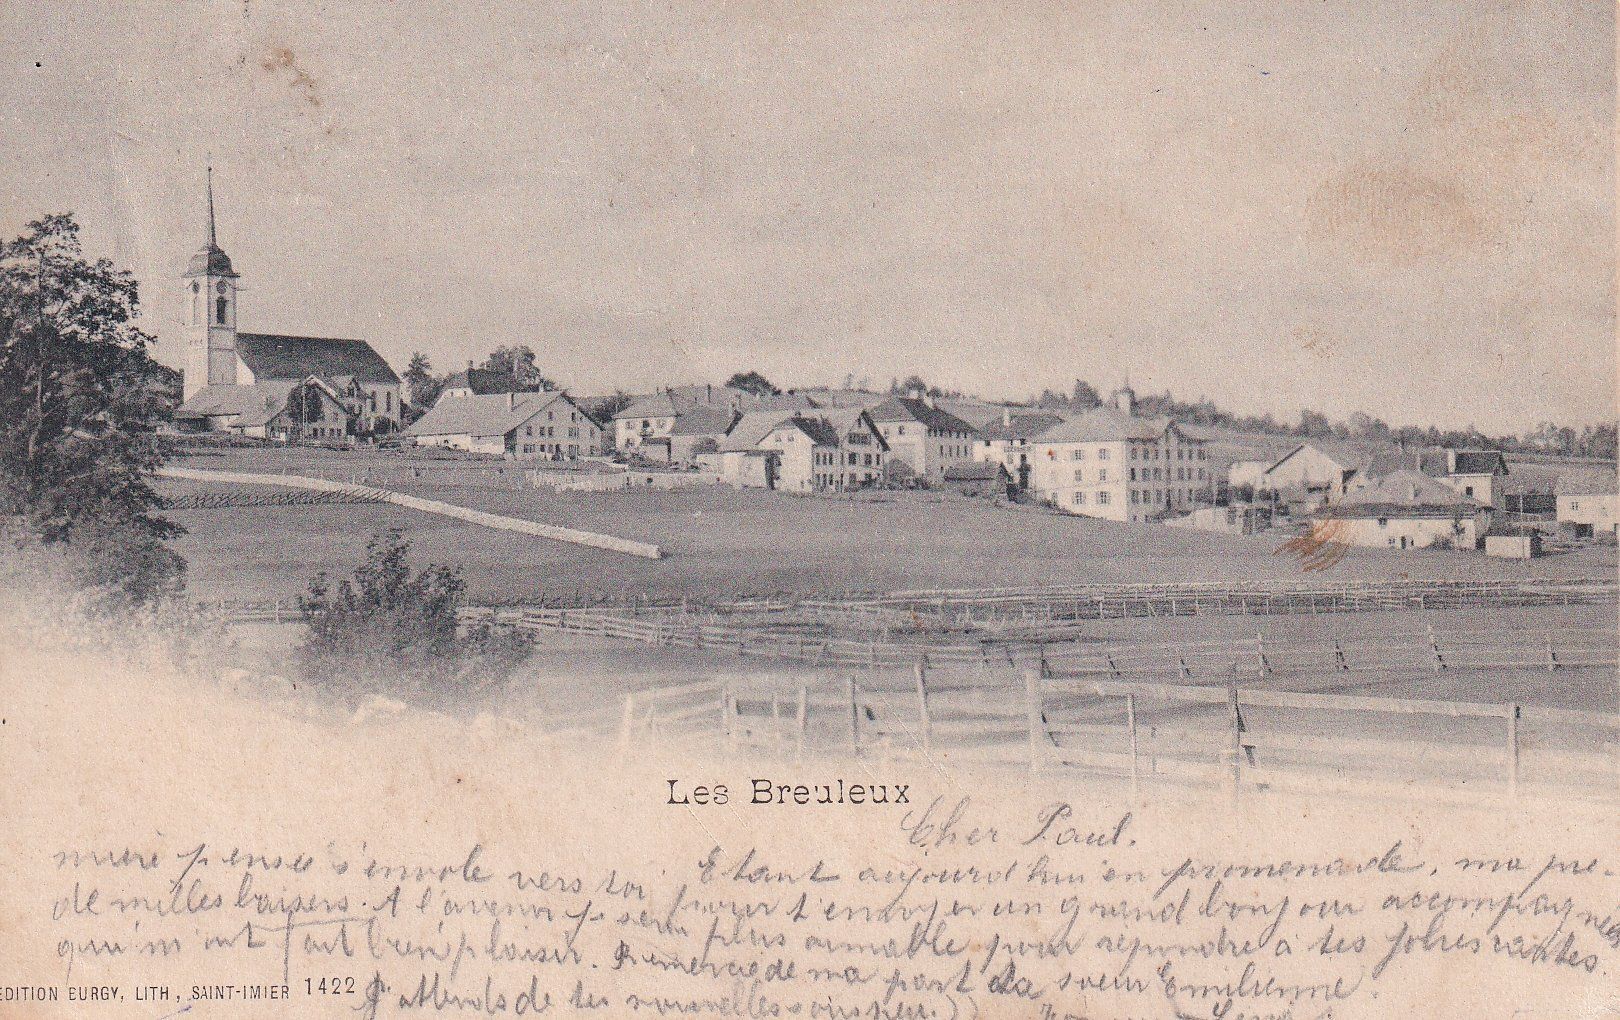 Les Breuleux
Cher Paul.
Etant aujourd'hui en promenade, ma pre-
mière pensée s'envole vers toi pour t'envoyer un grand bonjour accompagnés
de milles baisers. A l'avenir je serai plus aimable pour répondre à tes jolies cartes
qui m'ont fait bien plaisir. Remercie de ma part ta soeur Emilienne.
J'attends de tes nouvelles sous peu.
EDITION BURGY, LITH, SAINT-IMIER 1422